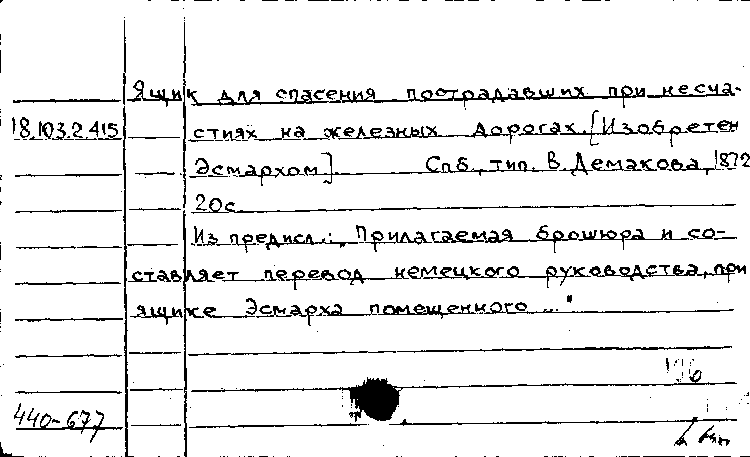 Ящик для спасения пострадавших при несча-
18.103.2.415 стиях на железных дорогах. [Изобретен
Эсмархом]. Спб, тип. В. Демакова, 1872
20с.
Из предисл.: "Прилагаемая брошюра и со-
ставляет перевод немецкого руководства, при
ящике Эсмарха помещенного ..."
196
440-677